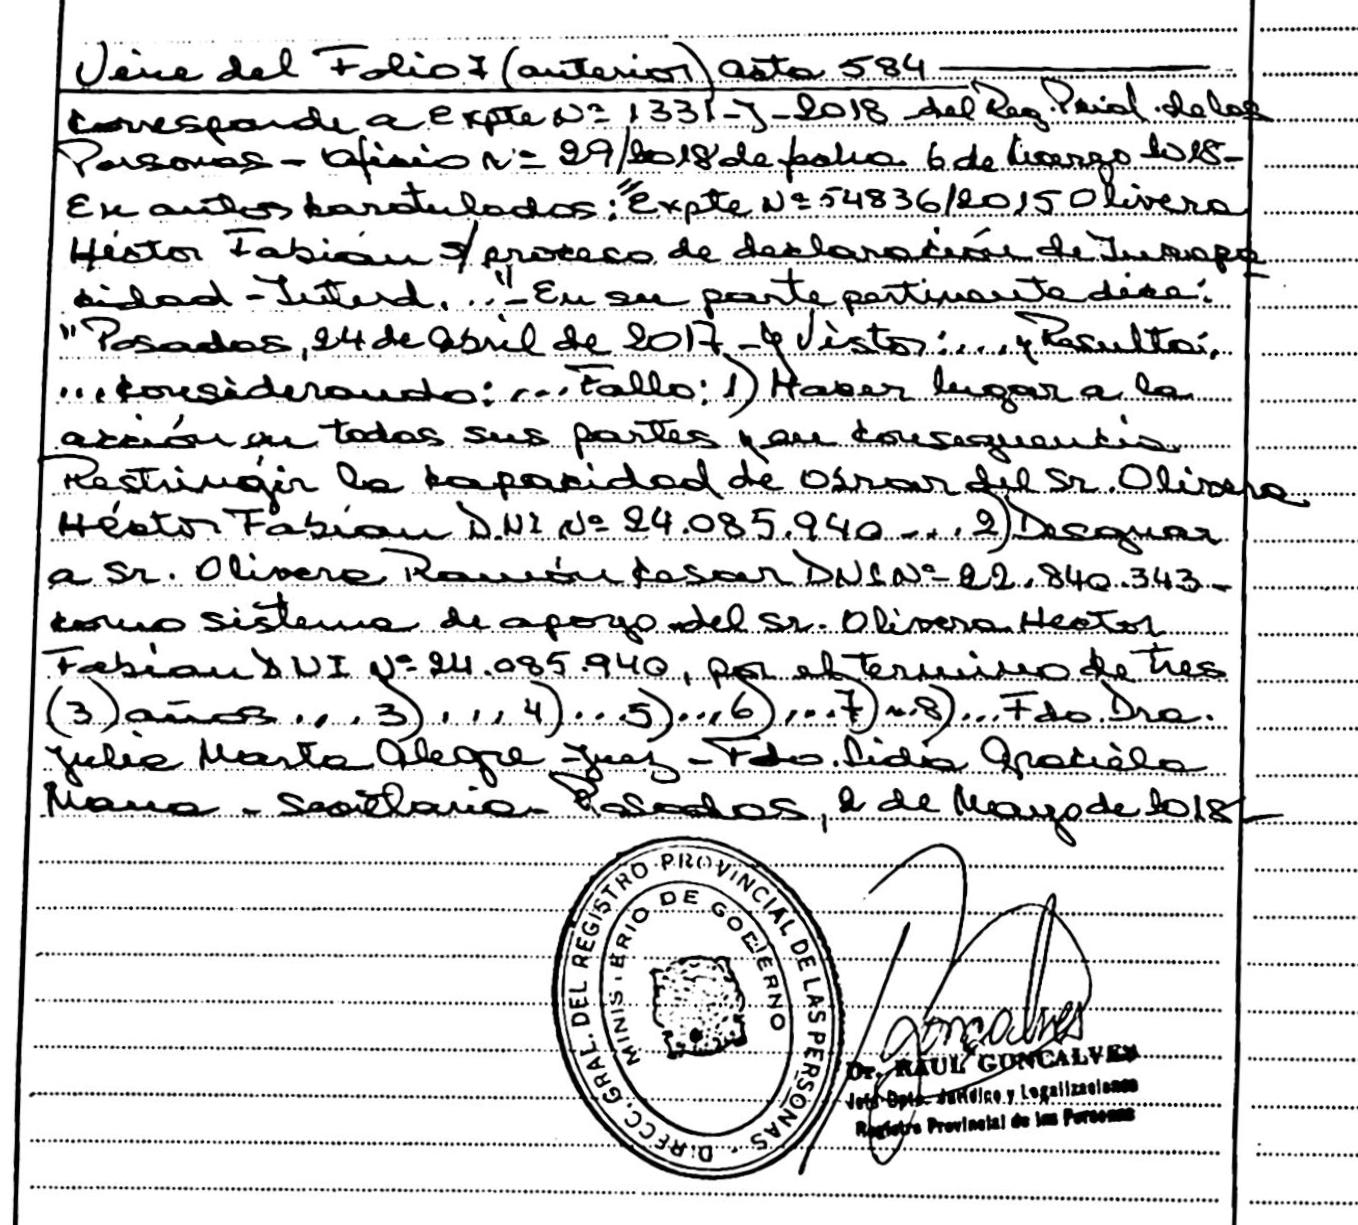 Viene del Folio 7 (anterior) acta 584
Corresponde a Expte Nº 1331-J-2018 del Reg. Pcial. de las
Personas - Oficio Nº 29/2018 de fecha 6 de Marzo 2018-
En autos caratulados: "Expte Nº 54836/2015 Olivera
Héctor Fabián s/ proceso de declaración de Incapa
cidad - Interd. ..." - En su parte pertinente dice:
"Posadas, 24 de abril de 2017 - y Vistos: ... y Resulta:
... considerando: ... Fallo: 1) Hacer lugar a la
acción en todas sus partes y en consecuencia
Restringir la capacidad de obrar del Sr. Olivera
Héctor Fabián D.N.I Nº 24.085.940 ... 2) Designar
a Sr. Olivera Ramón Cesar DNI Nº 22.840.343-
como sistema de apoyo del Sr. Olivera Hector
Fabian DNI Nº 24.085.940, por el termino de tres
(3) años ... 3) ... 4) ... 5) ... 6) ... 7) ... 8) ... Fdo. Dra.
Julia Marta Alegre - Juez - Fdo. Lidia Graciela
- Secretaria - Posadas, 2 de Mayo de 2018 -
DIRECC. GRAL. DEL REGISTRO PROVINCIAL DE LAS PERSONAS
MINISTERIO DE GOBIERNO
Gonçalves
Dr. RAUL GONCALVES
Jefe Dpto. Jurídico y Legalizaciones
Registro Provincial de las Personas